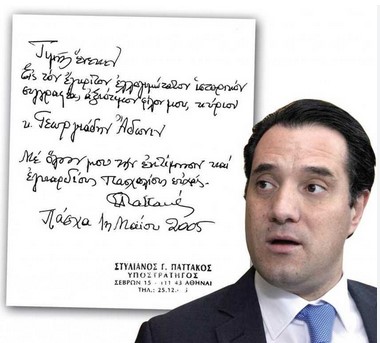 Τιμῆς ἕνεκεν
Εἰς τὸν ἔγκριτον ἐλλογιμώτατον ἱστορικόν
συγγραφέα, ἀξιότιμον φίλον μου, κύριον
κ. Γεωργιάδην Ἄδωνιν
Μέ ὅλην μου τὴν ἐκτίμησιν καί
ἐγκαρδίους Πασχαλίους εὐχάς.
Παττακός
Πάσχα 1η Μαΐου 2005
ΣΤΥΛΙΑΝΟΣ Γ. ΠΑΤΤΑΚΟΣ
ΥΠΟΣΤΡΑΤΗΓΟΣ
ΣΕΒΡΩΝ 15 - 111 43 ΑΘΗΝΑΙ
ΤΗΛ.: 25.12.